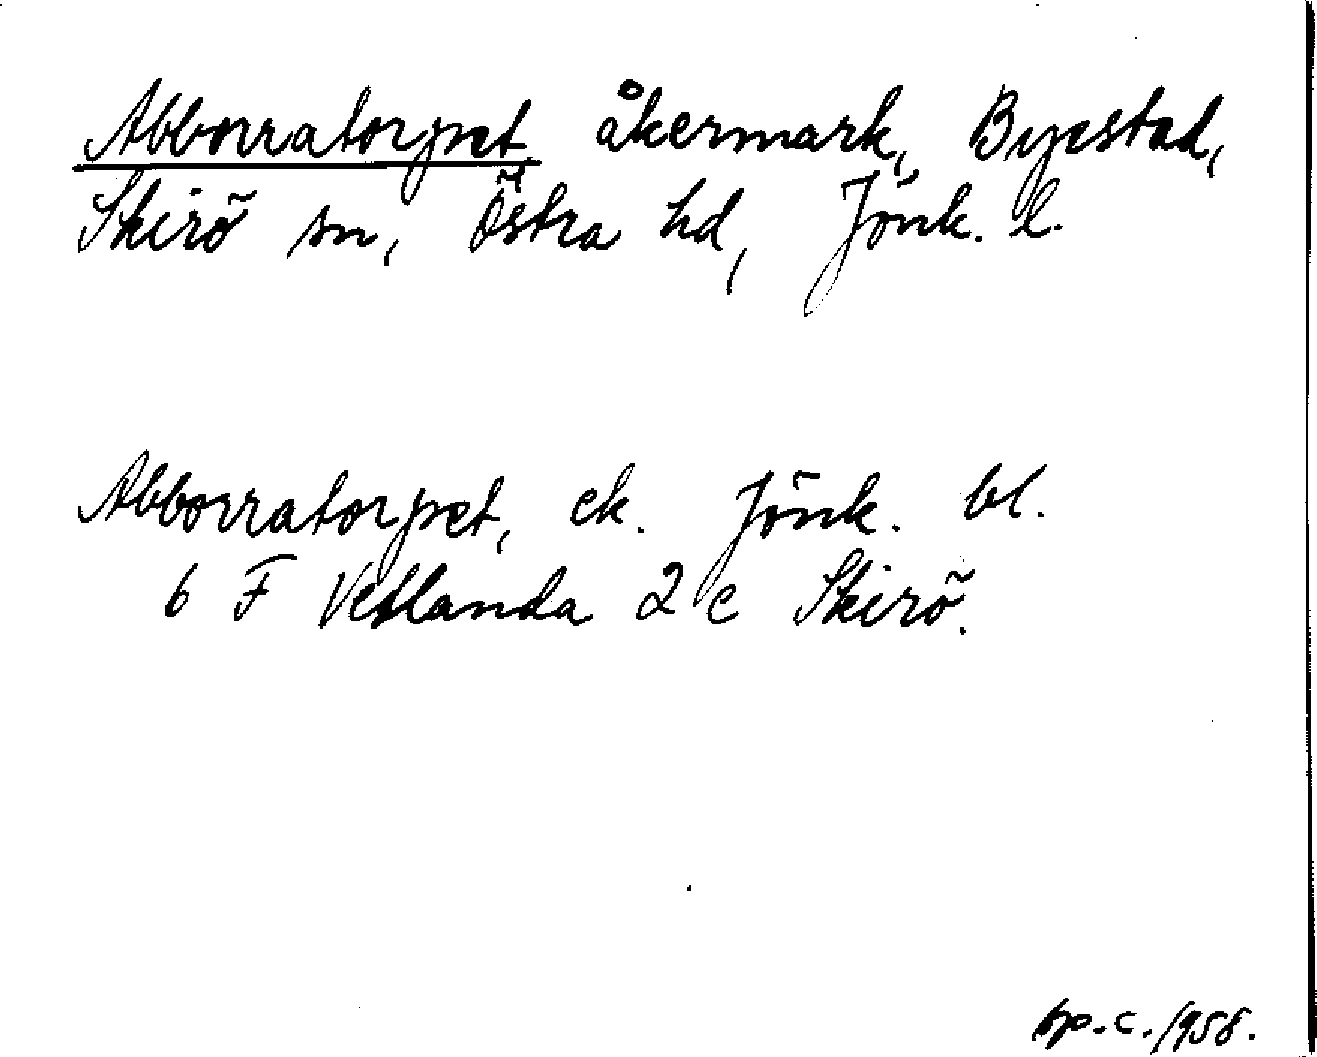 Abborratorpet åkermark, Byestad,
Skirö sn, Östra hd, Jönk. l.
Abborratorpet, ek. Jönk. bl.
6 F Vetlanda 2 c Skirö.
tp. c. 1958.